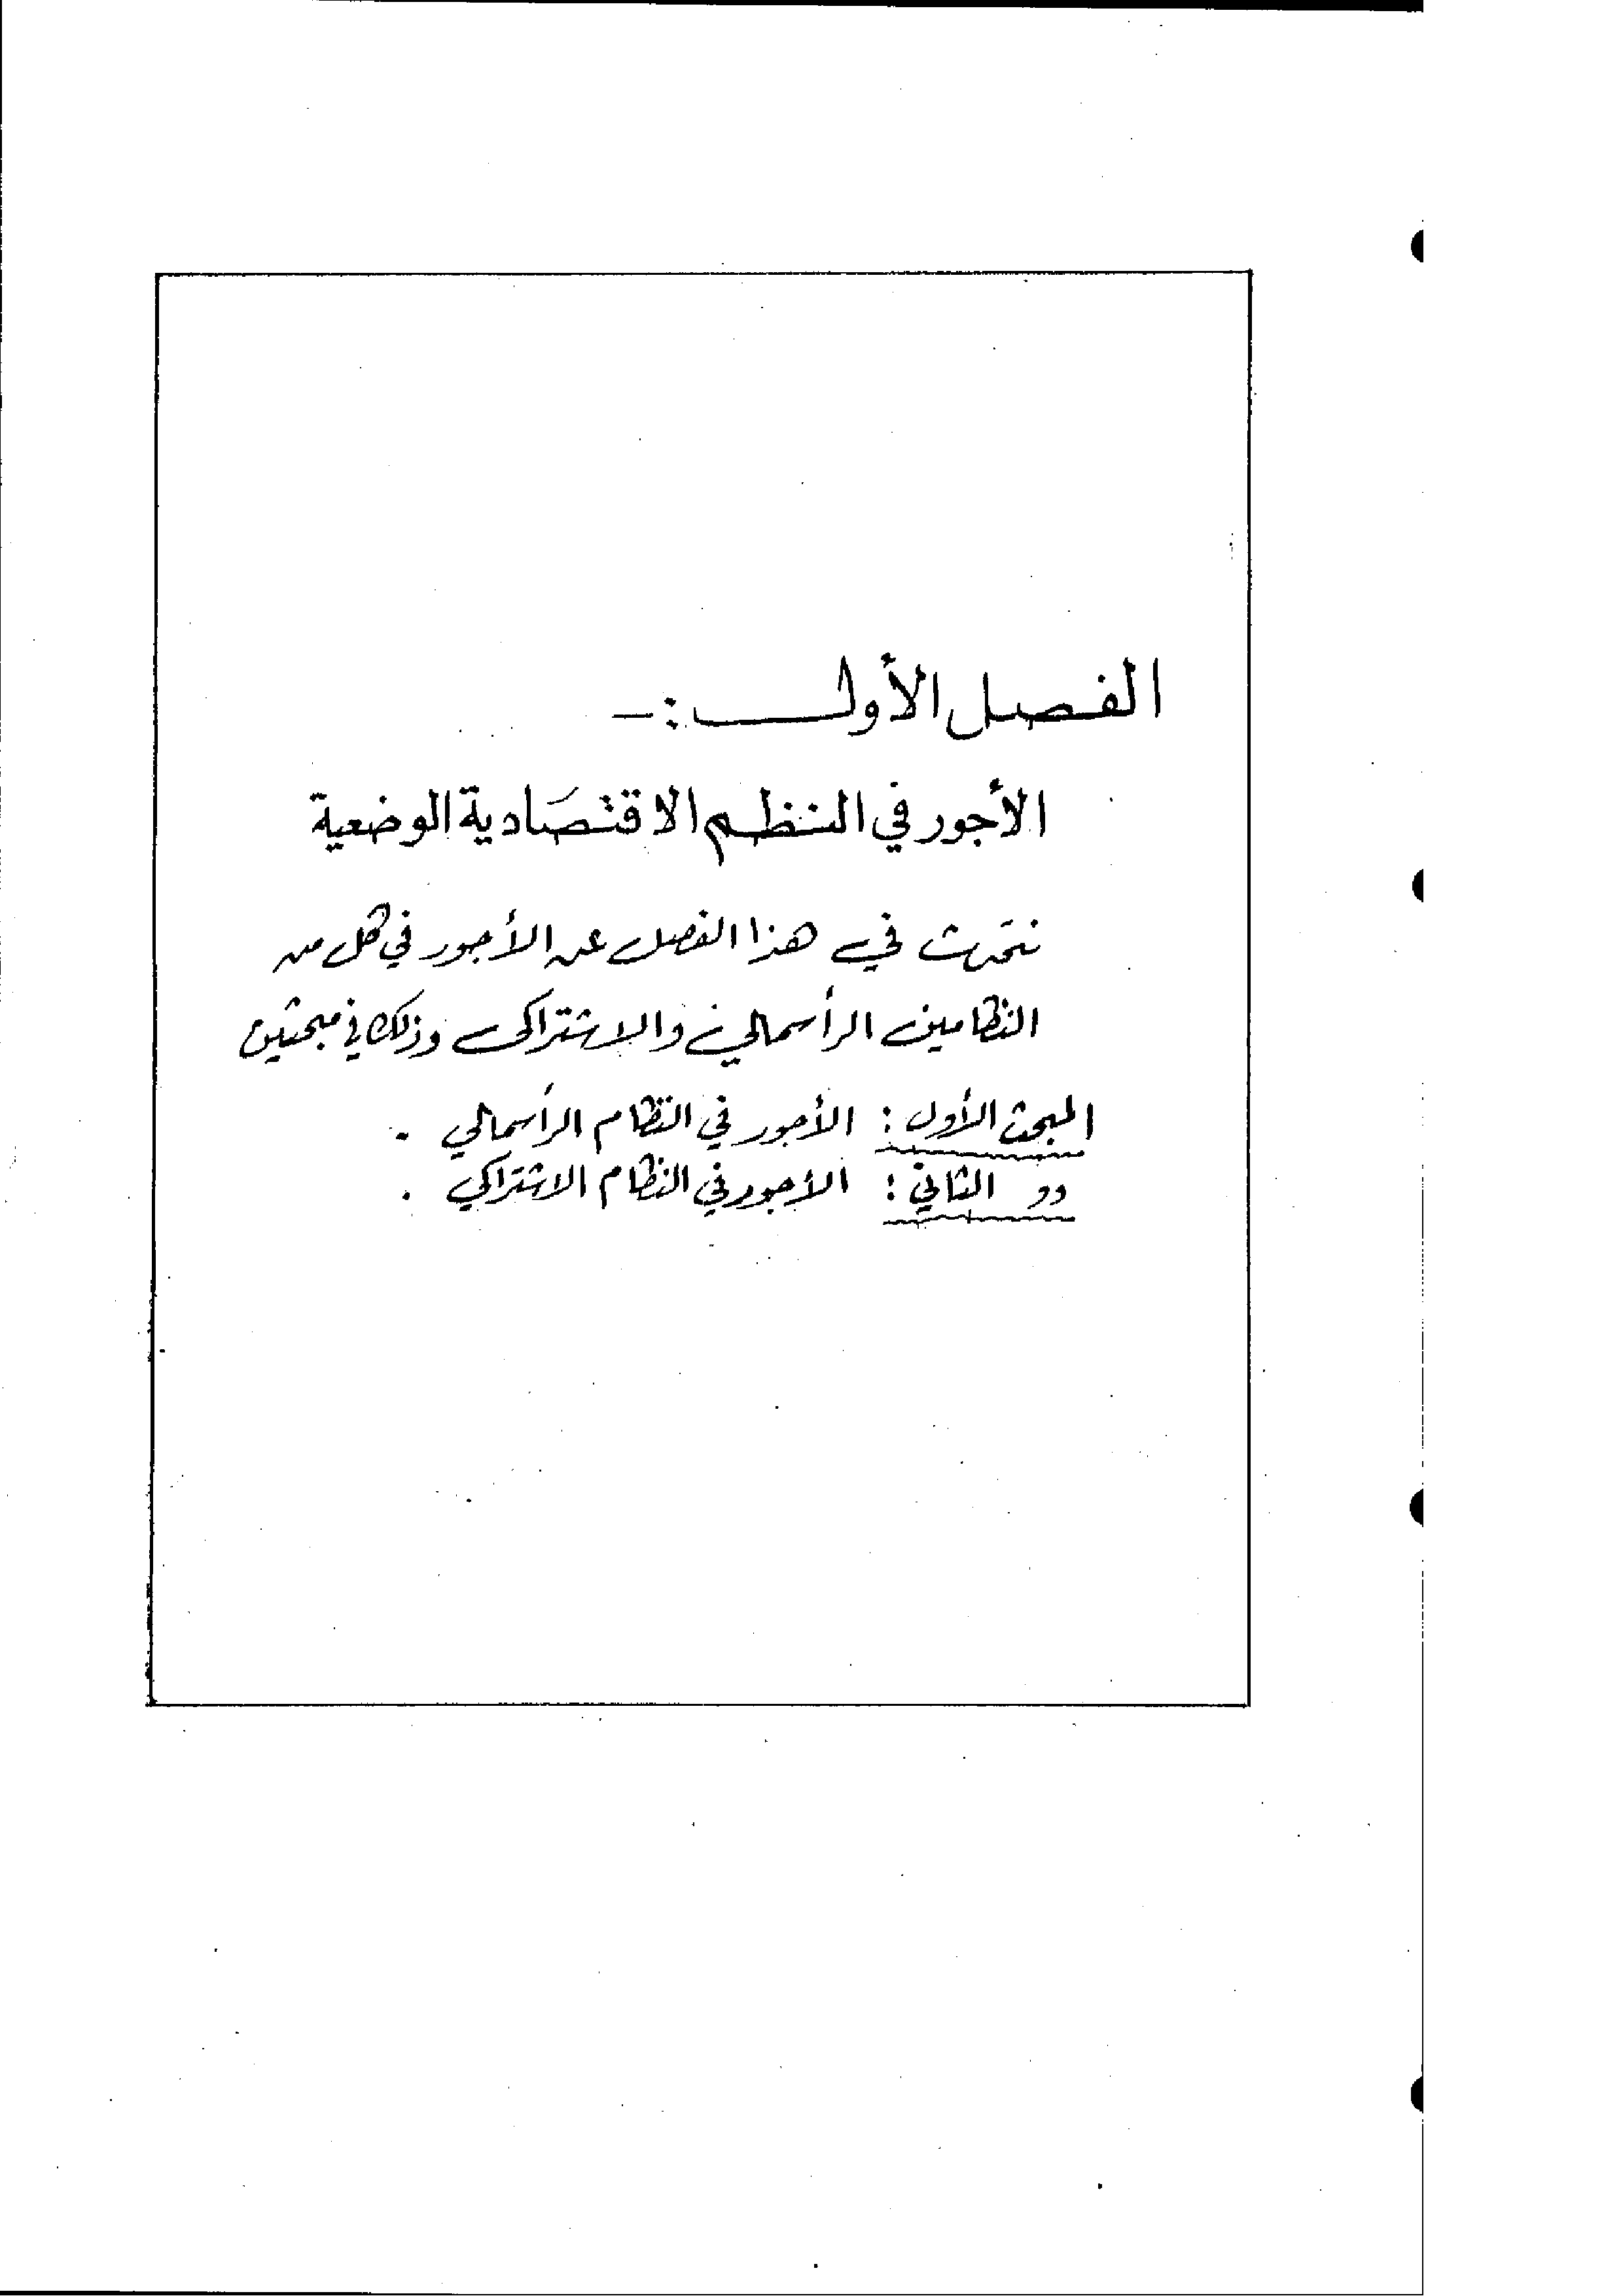 الفصل الأول :-
الأجور في النظم الاقتصَادية الوضعية
نتحدث في هذا الفصل عن الأجور في كل من
النظامين الرأسمالي والاشتراكي وذلك في مبحثين
المبحث الأول : الأجور في النظام الرأسمالي .
دد الثاني : الأجور في النظام الاشتراكي .